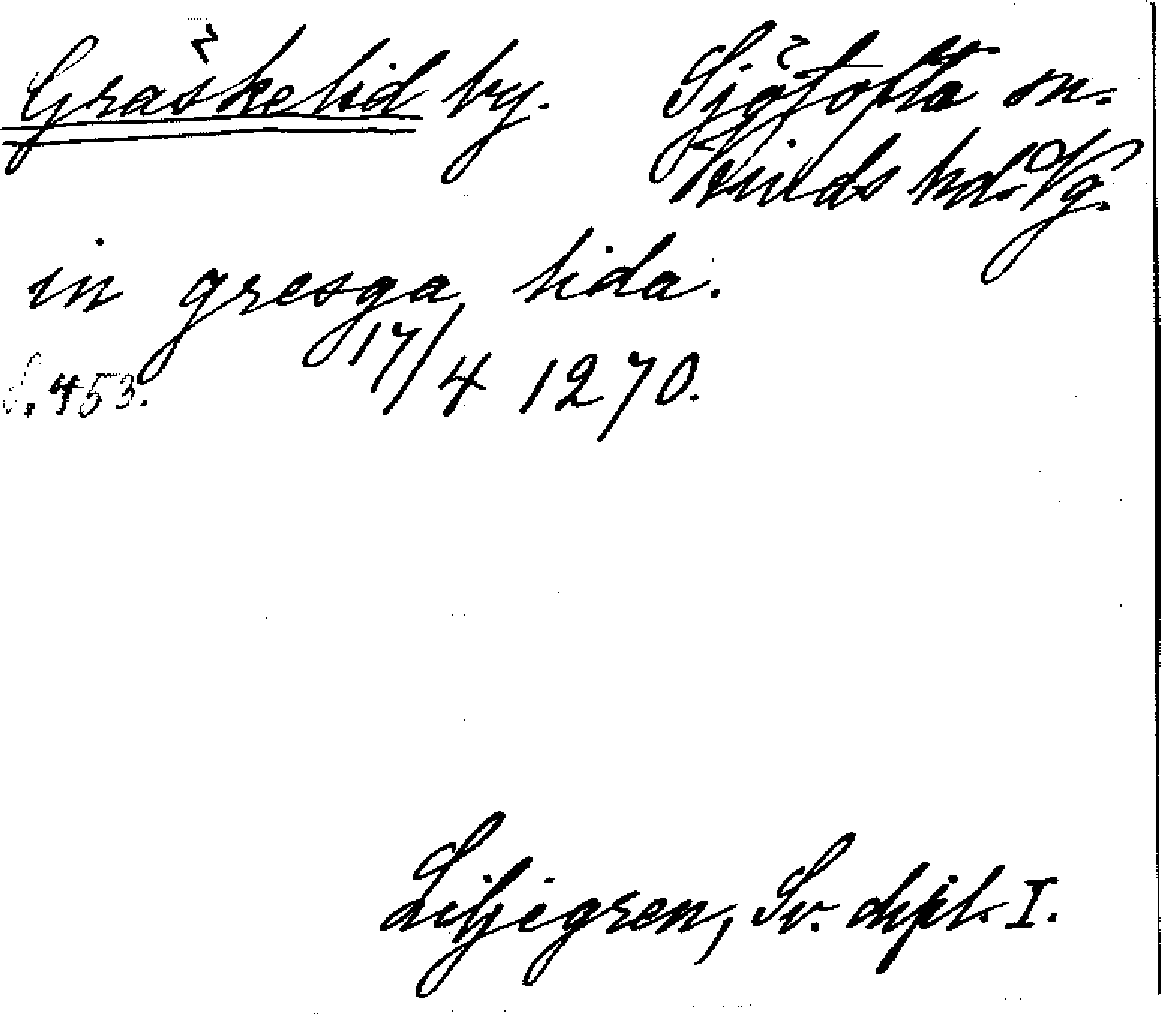 Gräskelid by. Sjötofta sn.
Kinds hd. Vg.
in gresga lida.
S. 453. 17/4 1270.
Liljegren, Sv. dipl. I.